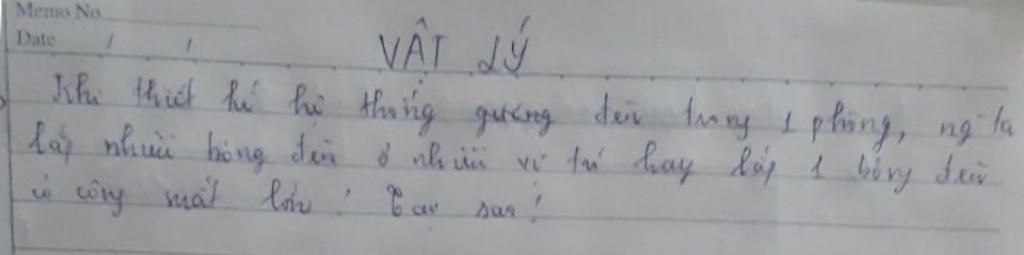 Memo No.
Date / /
VẬT LÝ
Khi thiết kế hệ thống gương đèn trong 1 phòng, ng ta
lắp nhiều bóng đèn ở nhiều vị trí hay lắp 1 bóng đèn
có công suất lớn? Tại sao?